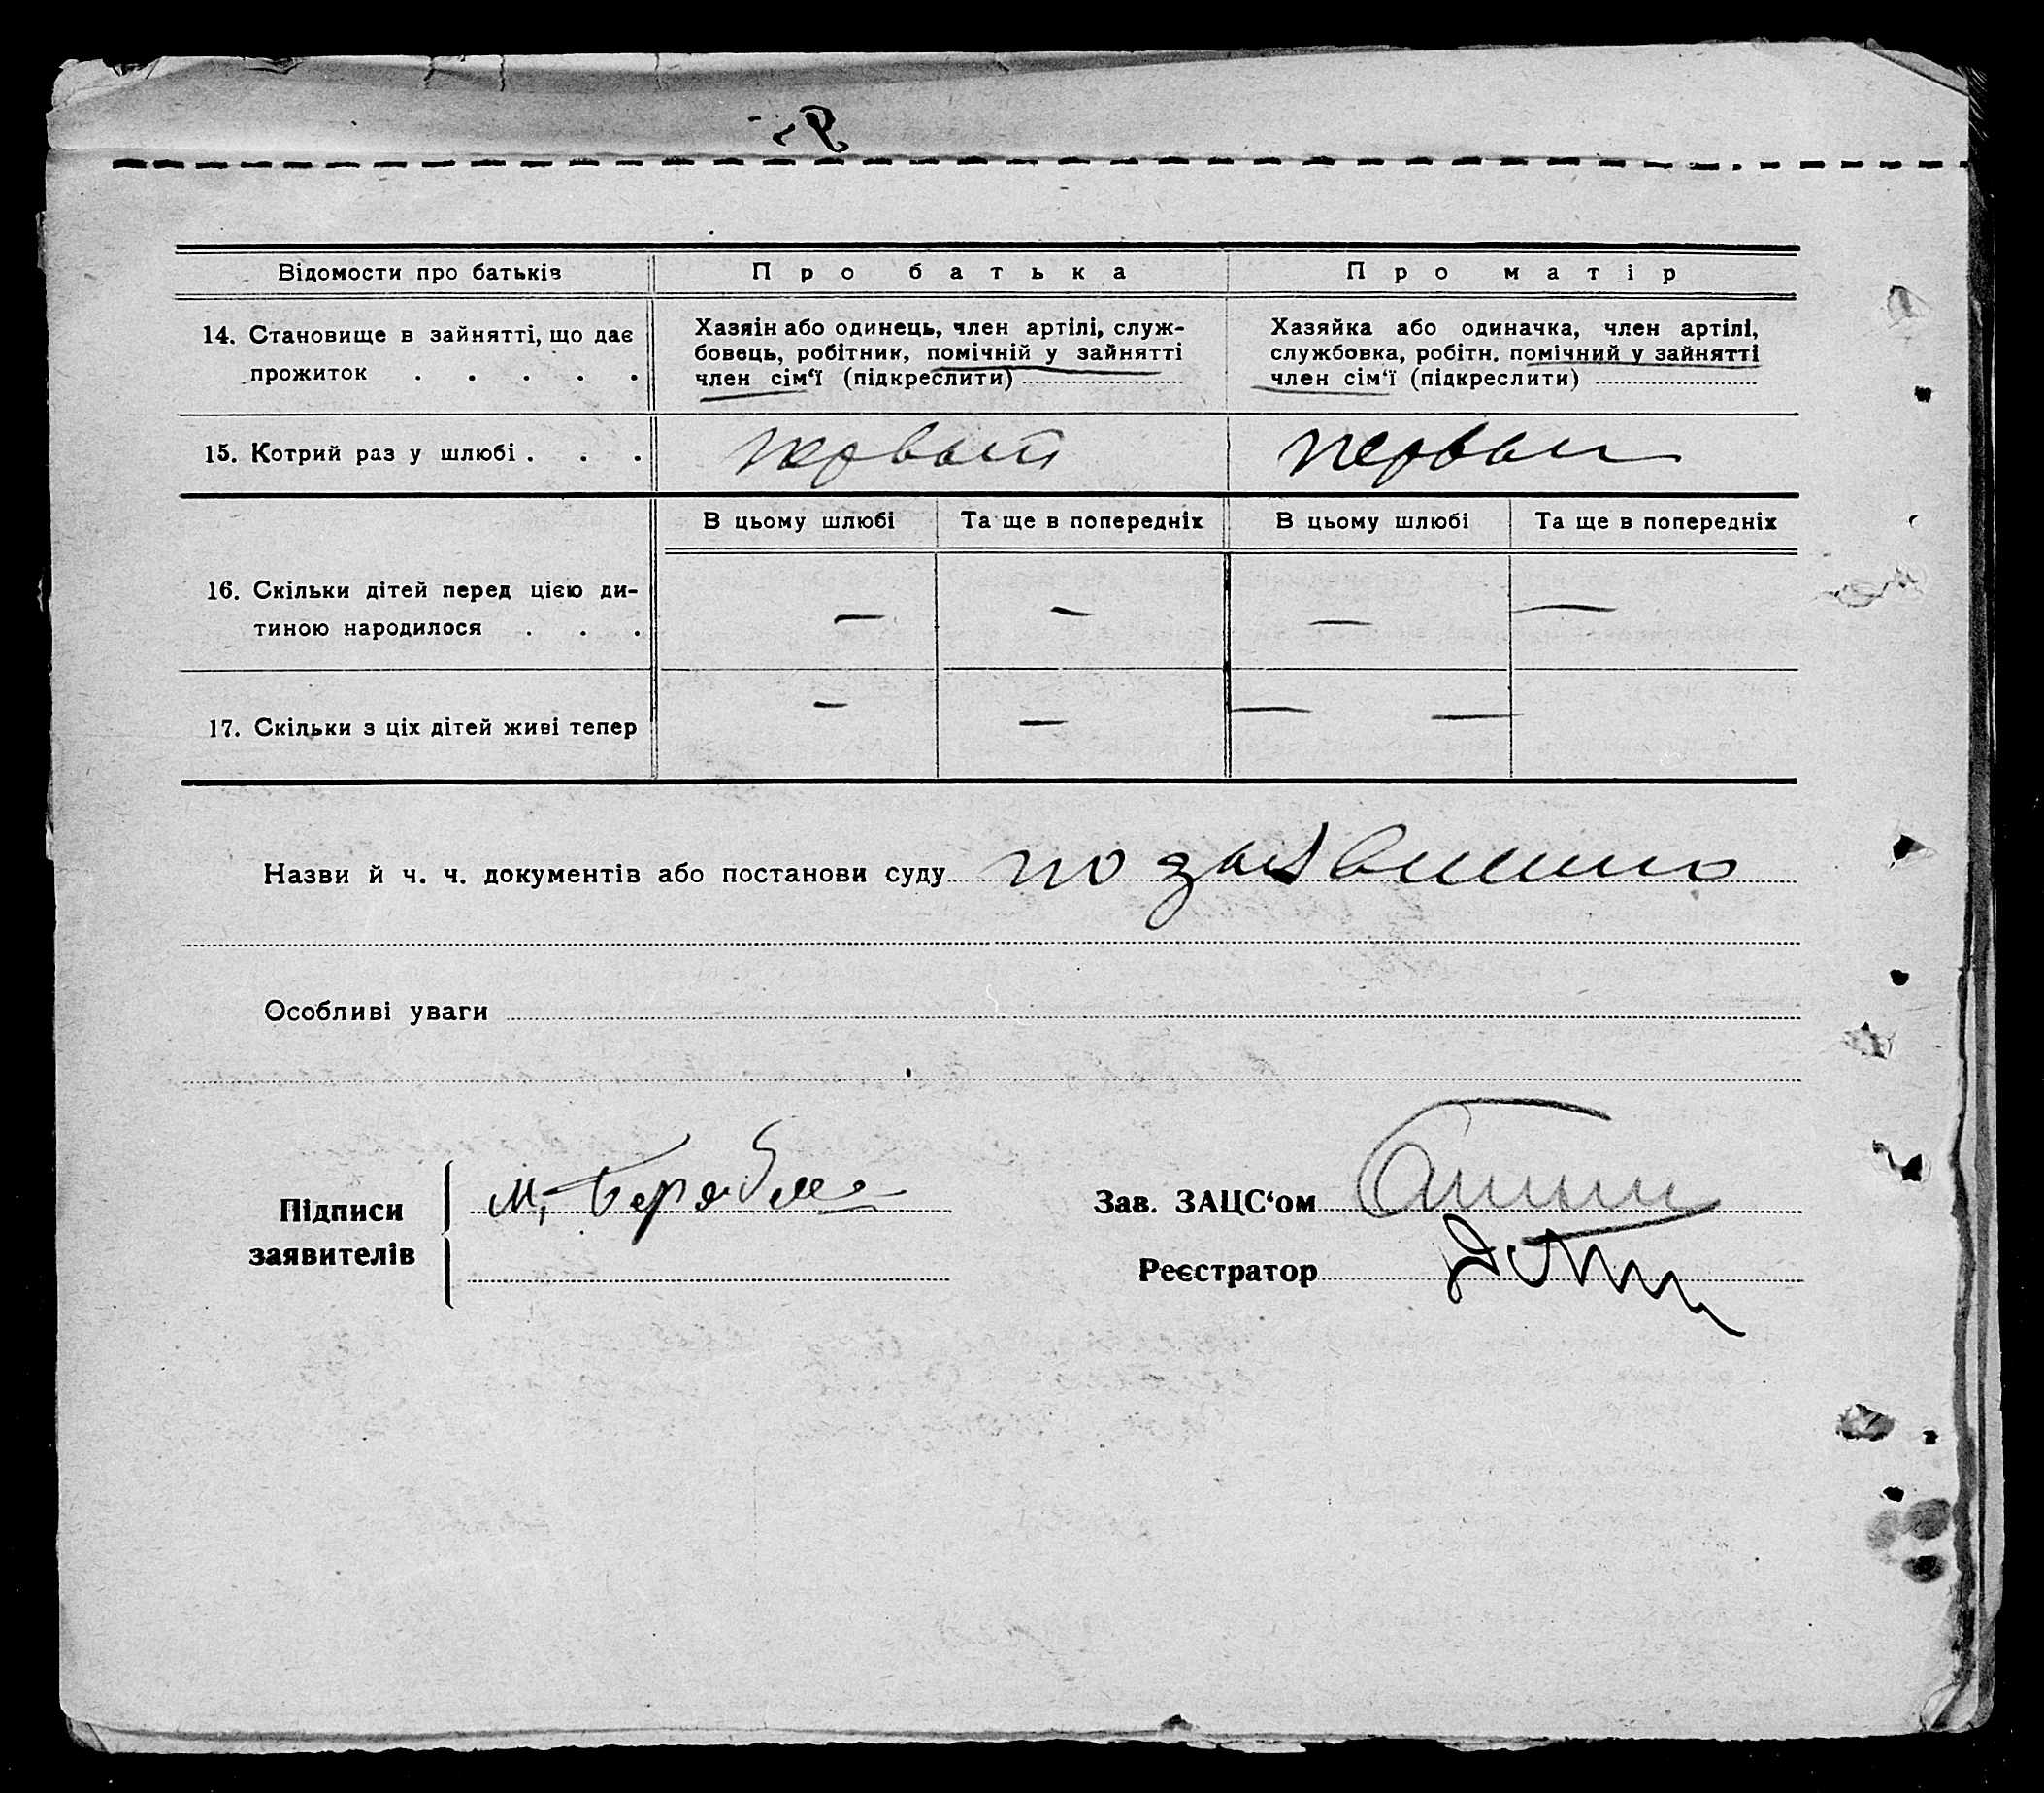 Відомости про батьків
Про батька
Про матір
14. Становище в зайнятті, що дає
прожиток . . . . .
Хазяїн або одинець, член артілі, служ-
бовець, робітник, помічній у зайнятті
член сім‘ї (підкреслити)
Хазяйка або одиначка, член артілі,
службовка, робітн. помічний у зайнятті
член сім‘ї (підкреслити)
15. Котрий раз у шлюбі . . .
первый
первый
В цьому шлюбі
Та ще в попередніх
В цьому шлюбі
Та ще в попередніх
16. Скільки дітей перед цією ди-
тиною народилося . . .
— — — —
17. Скільки з ціх дітей живі тепер
— — — —
Назви й ч. ч. документів або постанови суду по заявлению
Особливі уваги
Підписи
заявителів
М,
Зав. ЗАЦС‘ом
Реєстратор